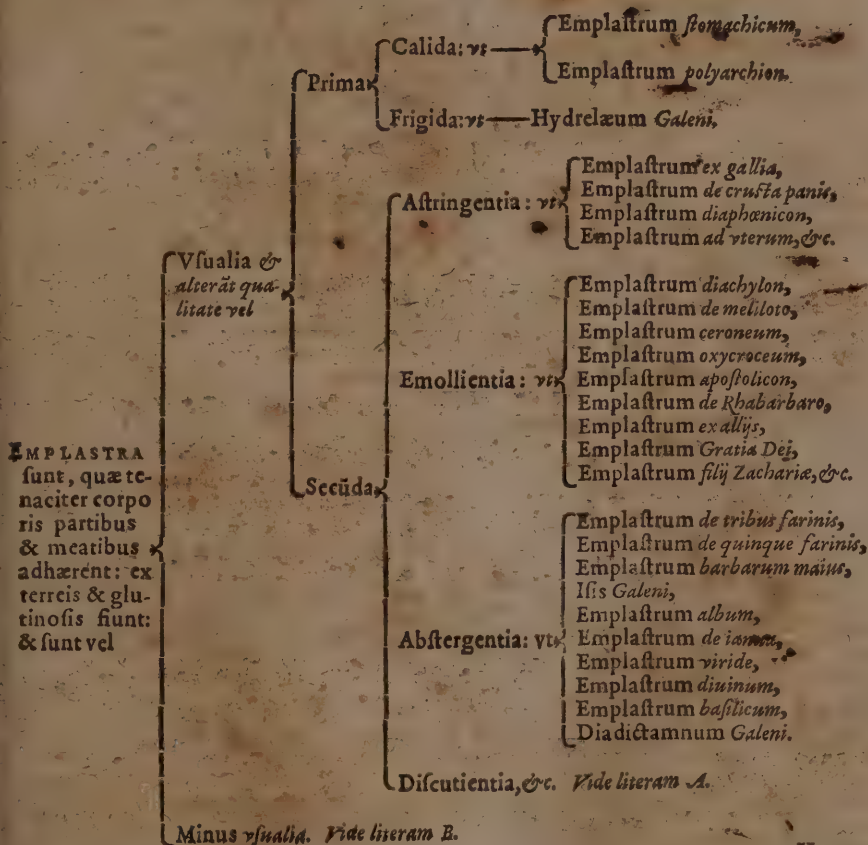 EMPLASTRA
ſunt, quæ te-
naciter corpo
ris partibus
& meatibus
adhærent: ex
terreis & glu-
tinoſis fiunt:
& ſunt vel
Vſualia &
alterāt qua-
litate vel
Prima
Calida: vt
Emplaſtrum ſtomachicum,
Emplaſtrum polyarchion.
Frigida: vt Hydrelæum Galeni,
Secūda
Aſtringentia: vt
Emplaſtrum ex gallia,
Emplaſtrum de cruſta panis,
Emplaſtrum diaphœnicon,
Emplaſtrum ad vterum, &c.
Emollientia: vt
Emplaſtrum diachylon,
Emplaſtrum de meliloto,
Emplaſtrum ceroneum,
Emplaſtrum oxycroceum,
Emplaſtrum apoſtolicon,
Emplaſtrum de Rhabarbaro,
Emplaſtrum ex allijs,
Emplaſtrum Gratia Dei,
Emplaſtrum filij Zachariæ, &c.
Abſtergentia: vt
Emplaſtrum de tribus farinis,
Emplaſtrum de quinque farinis,
Emplaſtrum barbarum maius,
Iſis Galeni,
Emplaſtrum album,
Emplaſtrum de
Emplaſtrum viride,
Emplaſtrum diuinum,
Emplaſtrum baſilicum,
Diadictamnum Galeni.
Diſcutientia, &c. Vide literam A.
Minus vſualia. Vide literam B.